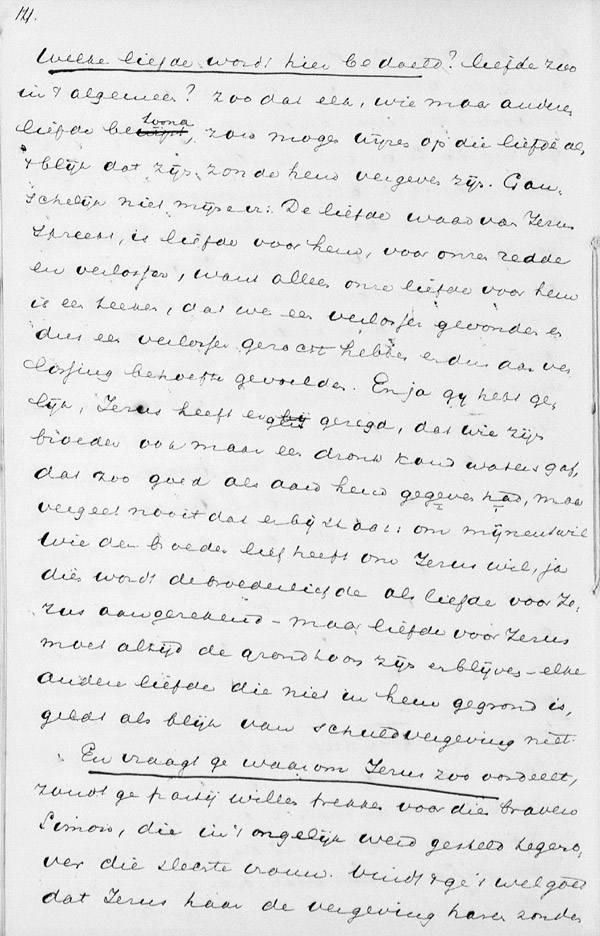 121.
Welke liefde wordt hier bedoeld? liefde zoo
in 't algemeen? zoo dat elk, wie maar andere
liefde betoond, zou mogen wijzen op die liefde als
't blijk dat zijn zonde hem vergeven zijn. Gan-
schelijk niet mijne: De liefde waarvan Jezus
spreekt, is liefde voor hem, voor onzen redder
en verlosser, want alleen onze liefde voor hem
is een teeken, dat we een verlosser gevonden en
dus een verlosser gezocht hebben en dus aan ver-
lossing behoefte gevoelden. En ja gij hebt ge-
lijk, Jezus heeft er bij gezegd, dat wie zijn
broeder ook maar een dronk koud waters gaf,
dat zoo goed als aan hem gegeven had, maar
vergeet nooit dat erbij staat: om mijnentwil
wie den broeder lief heeft om Jezus wil, ja
dien wordt de broederliefde als liefde voor Je-
zus aangerekend – maar liefde voor Jezus
moet altijd de grondtoon zijn en blijven – elke
andere liefde die niet in hem gegrond is,
geldt als blijk van schuldvergeving niet.
En vraagt ge waarom Jezus zoo oordeelt,
zoudt ge partij willen trekken voor dien braven
Simon, die in 't ongelijk werd gesteld tegeno-
ver die slechte vrouw. Vindt ge 't wel goed
dat Jezus haar de vergeving harer zonden